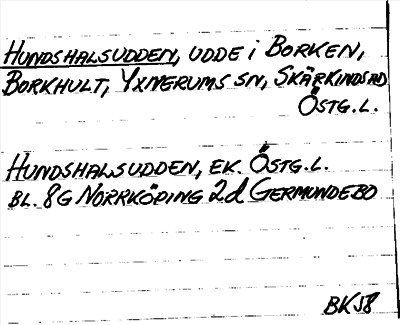 HUNDSHALSUDDEN, UDDE I BORKEN,
BORKHULT, YXNERUMS SN, SKÄRKINDS HD
ÖSTG. L.
HUNDSHALSUDDEN, EK. ÖSTG. L.
BL. 8G NORRKÖPING 2d GERMUNDEBO
BKJ8